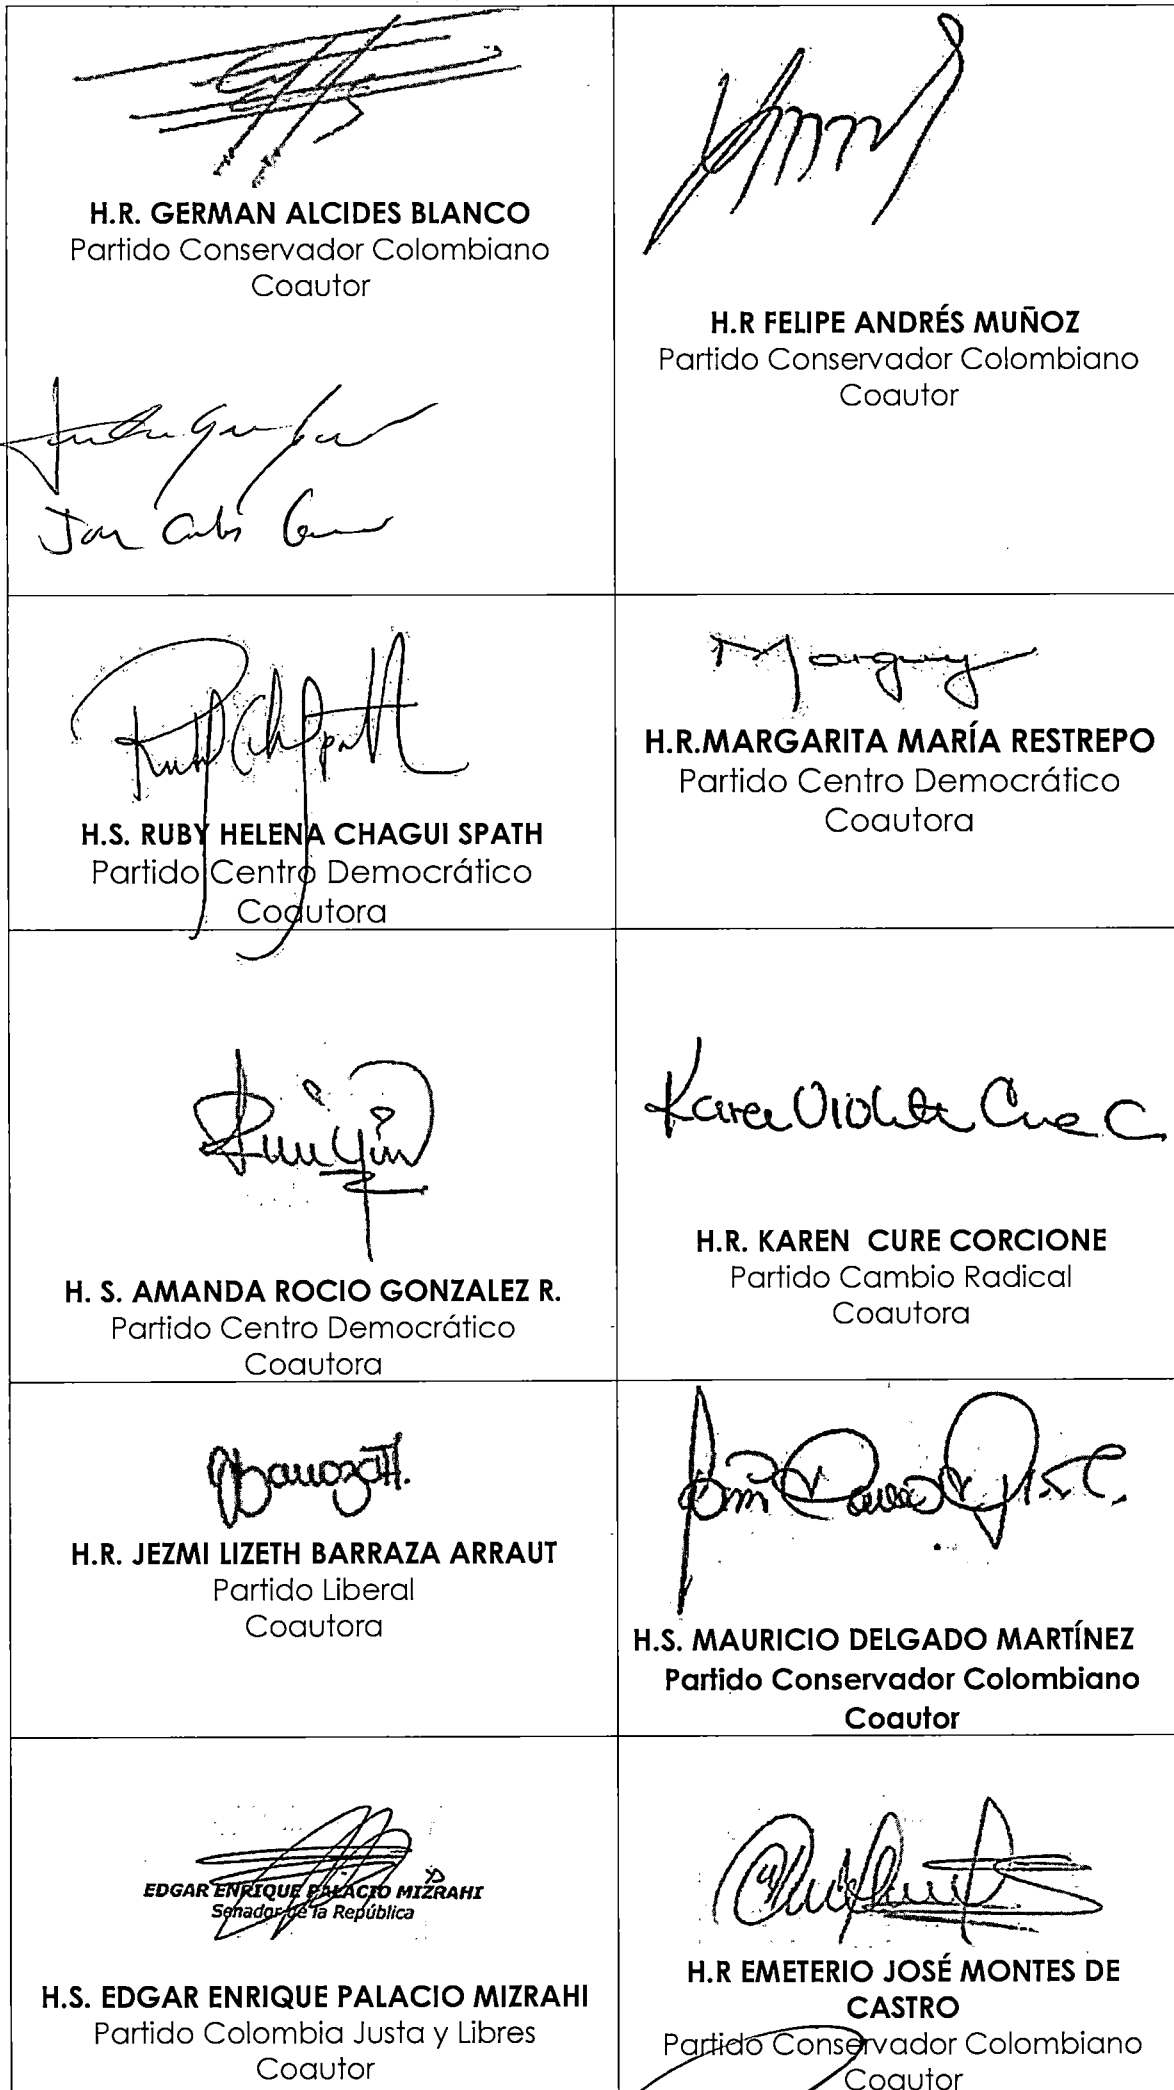 H.R. GERMAN ALCIDES BLANCO
Partido Conservador Colombiano
Coautor
H.R FELIPE ANDRÉS MUÑOZ
Partido Conservador Colombiano
Coautor
H.S. RUBY HELENA CHAGUI SPATH
Partido Centro Democrático
Coautora
H.R.MARGARITA MARÍA RESTREPO
Partido Centro Democrático
Coautora
H. S. AMANDA ROCIO GONZALEZ R.
Partido Centro Democrático
Coautora
Karen Violette Cure C.
H.R. KAREN CURE CORCIONE
Partido Cambio Radical
Coautora
H.R. JEZMI LIZETH BARRAZA ARRAUT
Partido Liberal
Coautora
H.S. MAURICIO DELGADO MARTÍNEZ
Partido Conservador Colombiano
Coautor
EDGAR ENRIQUE PALACIO MIZRAHI
Senador de la República
H.S. EDGAR ENRIQUE PALACIO MIZRAHI
Partido Colombia Justa y Libres
Coautor
H.R EMETERIO JOSÉ MONTES DE
CASTRO
Partido Conservador Colombiano
Coautor